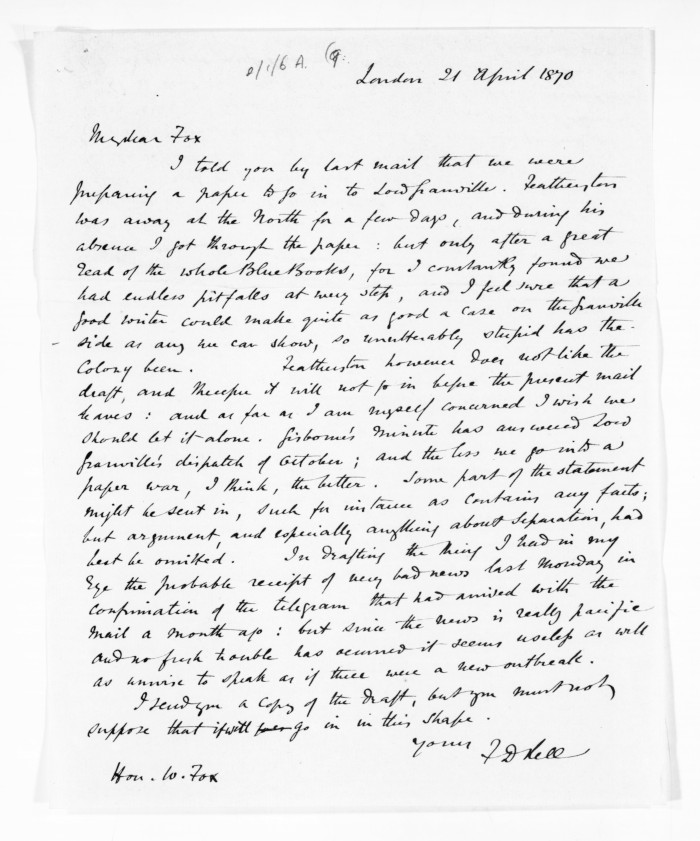 London 21 April 1870
My dear Fox
I told you by last mail that we were
preparing a paper to go in to Lord Granville. Featherston
was away at the North for a few days, and during his
absence I got through the paper: but only after a great
read of the whole Blue Books, for I constantly found we
had endless pitfalls at every step, and I feel sure that a
good writer could make quite as good a case on the Granville
side as any we can show, so unutterably stupid has the
Colony been. Featherston however does not like the
draft, and therefore it will not go in before the present mail
leaves: and as far as I am myself concerned I wish we
should let it alone. Gisborne's Minute has answered Lord
Granville's dispatch of October; and the less we go into a
paper war, I think, the better. Some part of the statement
might be sent in, such for instance as contains any facts;
but argument, and especially anything about Separation, had
best be omitted. In drafting the thing I had in my
Eye the probable receipt of very bad news last Monday in
confirmation of the telegram that had arrived with the
mail a month ago: but since the news is really pacific
and no fresh trouble has occurred it seems useless as well
as unwise to speak as if there were a new outbreak.
I send you a copy of the draft, but you must not
suppose that it will go in in this shape.
Yours FDBell
Hon. W. Fox